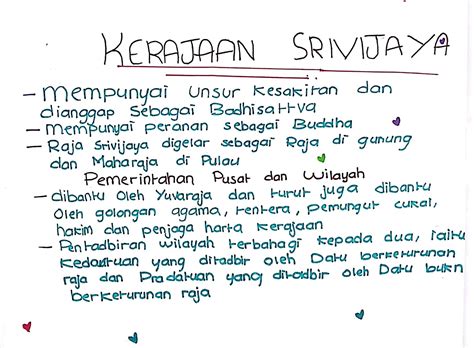 KERAJAAN SRIVIJAYA
- Mempunyai unsur kesakitan dan
dianggap sebagai Bodhisattva
- Mempunyai peranan sebagai Buddha
- Raja Srivijaya digelar sebagai Raja di gunung
dan Maharaja di Pulau
Pemerintahan Pusat dan Wilayah
- dibantu oleh Yuvaraja dan turut juga dibantu
oleh golongan agama, tentera, pemungut cukai,
hakim dan penjaga harta kerajaan
- Pentadbiran wilayah terbahagi kepada dua, iaitu
Kedautuan yang ditadbir oleh Datu berketurunan
raja dan Pradatuan yang ditadbir oleh Datu bukn
berketurunan raja